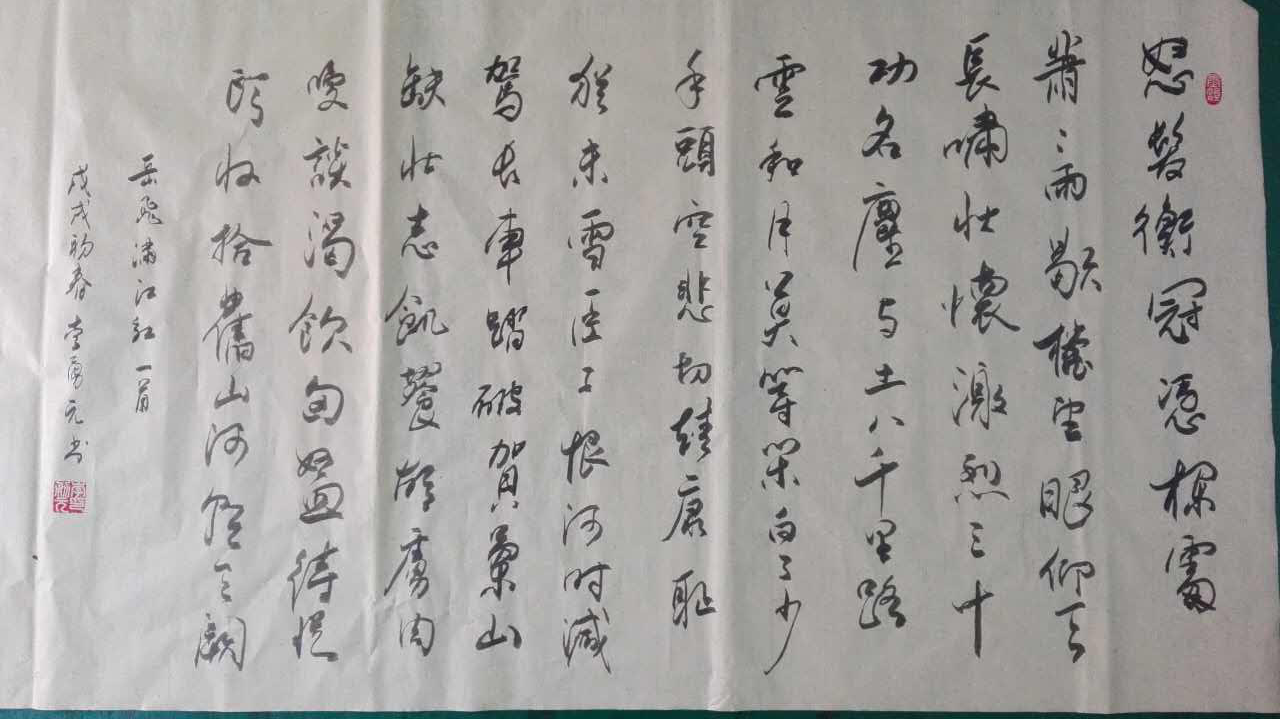 怒髮衝冠憑欄處
蕭々雨歇擡望眼仰天
長嘯壯懷激烈三十
功名塵与土八千里路
雲和月莫等閑白了少
年頭空悲切靖康耻
猶未雪臣子恨何时滅
駕长車踏破賀蘭山
缺壯志飢餐胡虜肉
笑談渴飲匈奴血待從
頭收拾舊山河朝天闕
岳飛滿江红一首
戊戌初春李勇元书